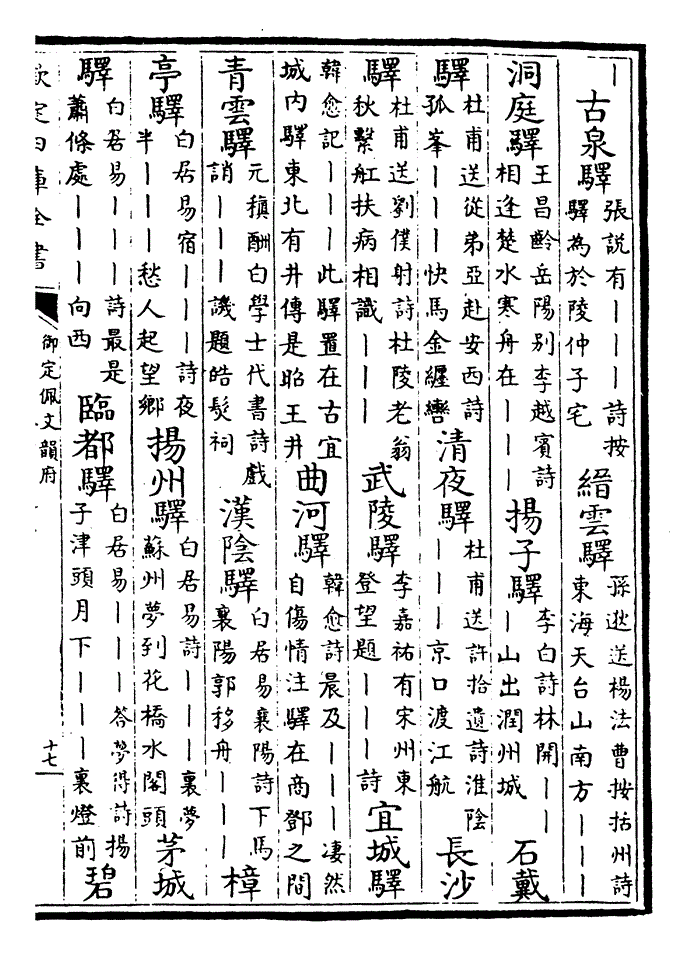 ｜古泉驛張説有｜｜｜詩按驛為於陵仲子宅縉雲驛孫逖送楊法曹按括州詩東海天台山南方｜｜｜
洞庭驛王昌齡岳陽別李越賓詩相逢楚水寒舟在｜｜｜揚子驛李白詩林開｜｜｜山出潤州城石戴
驛杜甫送從弟亞赴安西詩孤峯｜｜｜快馬金纏轡清夜驛杜甫送許拾遺詩淮陰｜｜｜京口渡江航長沙
驛杜甫送劉僕射詩杜陵老翁秋繫舡扶病相識｜｜｜武陵驛李嘉祐有宋州東登望題｜｜｜詩宜城驛
韓愈記｜｜｜此驛置在古宜城内驛東北有井傳是昭王井曲河驛韓愈詩晨及｜｜｜凄然自傷情注驛在商鄧之間
青雲驛元稹酬白學士代書詩戲誚｜｜｜譏題皓髮祠漢陰驛白居易襄陽詩下馬襄陽郭移舟｜｜｜樟
亭驛白居易宿｜｜｜詩夜半｜｜｜愁人起望鄉揚州驛白居易詩｜｜｜裏夢蘇州夢到花橋水閣頭茅城
驛白居易｜｜｜詩最是蕭條處｜｜｜向西臨都驛白居易｜｜｜答夢得詩揚子津頭月下｜｜｜裏燈前碧
欽定四庫全書
御定佩文韻府
十七